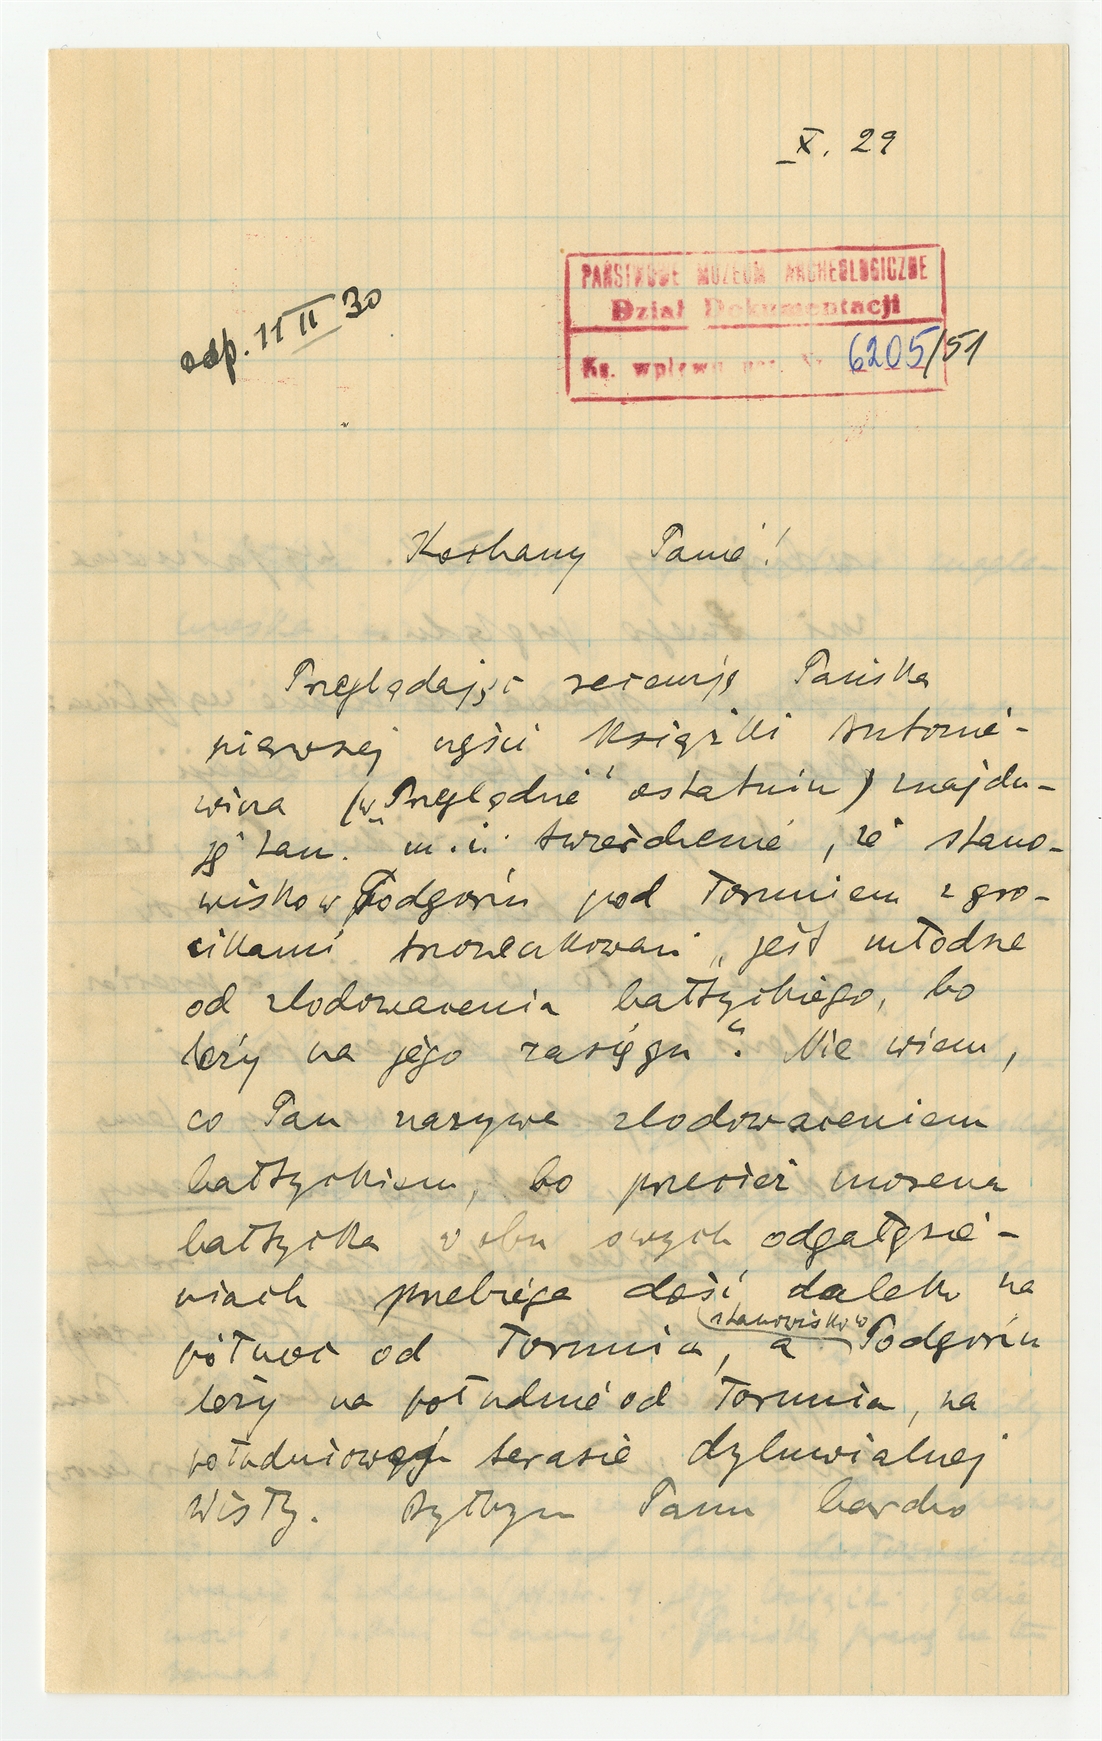 X. 29
odp. 11 II 30
PAŃSTWOWE MUZEUM ARCHEOLOGICZNE
Dział Dokumentacji
Ks. wpływu 6205/51
Kochany Panie!
Przeglądając recenzję Pańską
pierwszej części książki Antonie-
wicza (w „Przeglądzie" ostatnim) znajdu-
ję tam. m. i. twierdzenie, że stano-
wisko w Podgórzu pod Toruniem z gro-
cikami trzoneczkowatymi „jest młodsze
od zlodowacenia bałtyckiego, bo
leży na jego zasięgu". Nie wiem,
co Pan nazywa zlodowaceniem
bałtyckiem, bo przecież morena
bałtycka w obu swych odgałęzie-
niach przebiega dość daleko na
północ od Torunia, a stanowisko w Podgórzu
leży na południe od Torunia, na
południowej terasie dyluwialnej
Wisły. Byłbym Panu bardzo